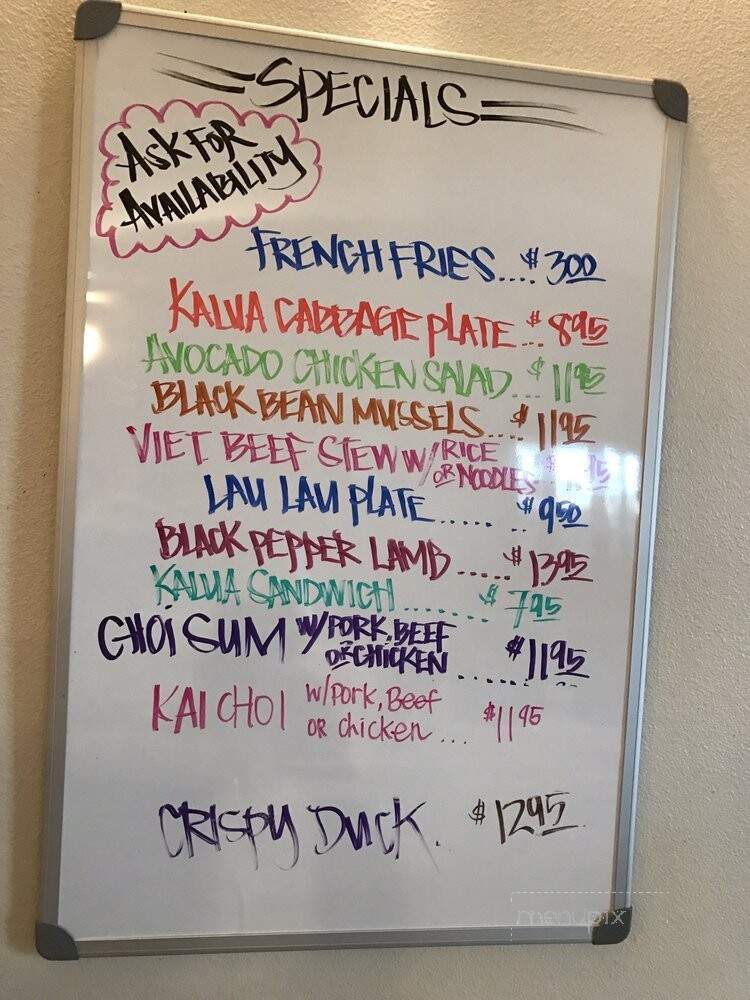 SPECIALS
ASK FOR
AVAILABILITY
FRENCH FRIES....$300
KALUA CABBAGE PLATE...$895
AVOCADO CHICKEN SALAD...$1195
BLACK BEAN MUSSELS....$1195
VIET BEEF STEW W/RICE
OR NOODLES
LAU LAU PLATE..... ..$950
BLACK PEPPER LAMB.....$1395
KALUA SANDWICH.......$795
CHOI SUM W/PORK, BEEF
OR CHICKEN ......$1195
KAI CHOI w/Pork, Beef
OR chicken...$1195
CRISPY DUCK. $1295
menupix